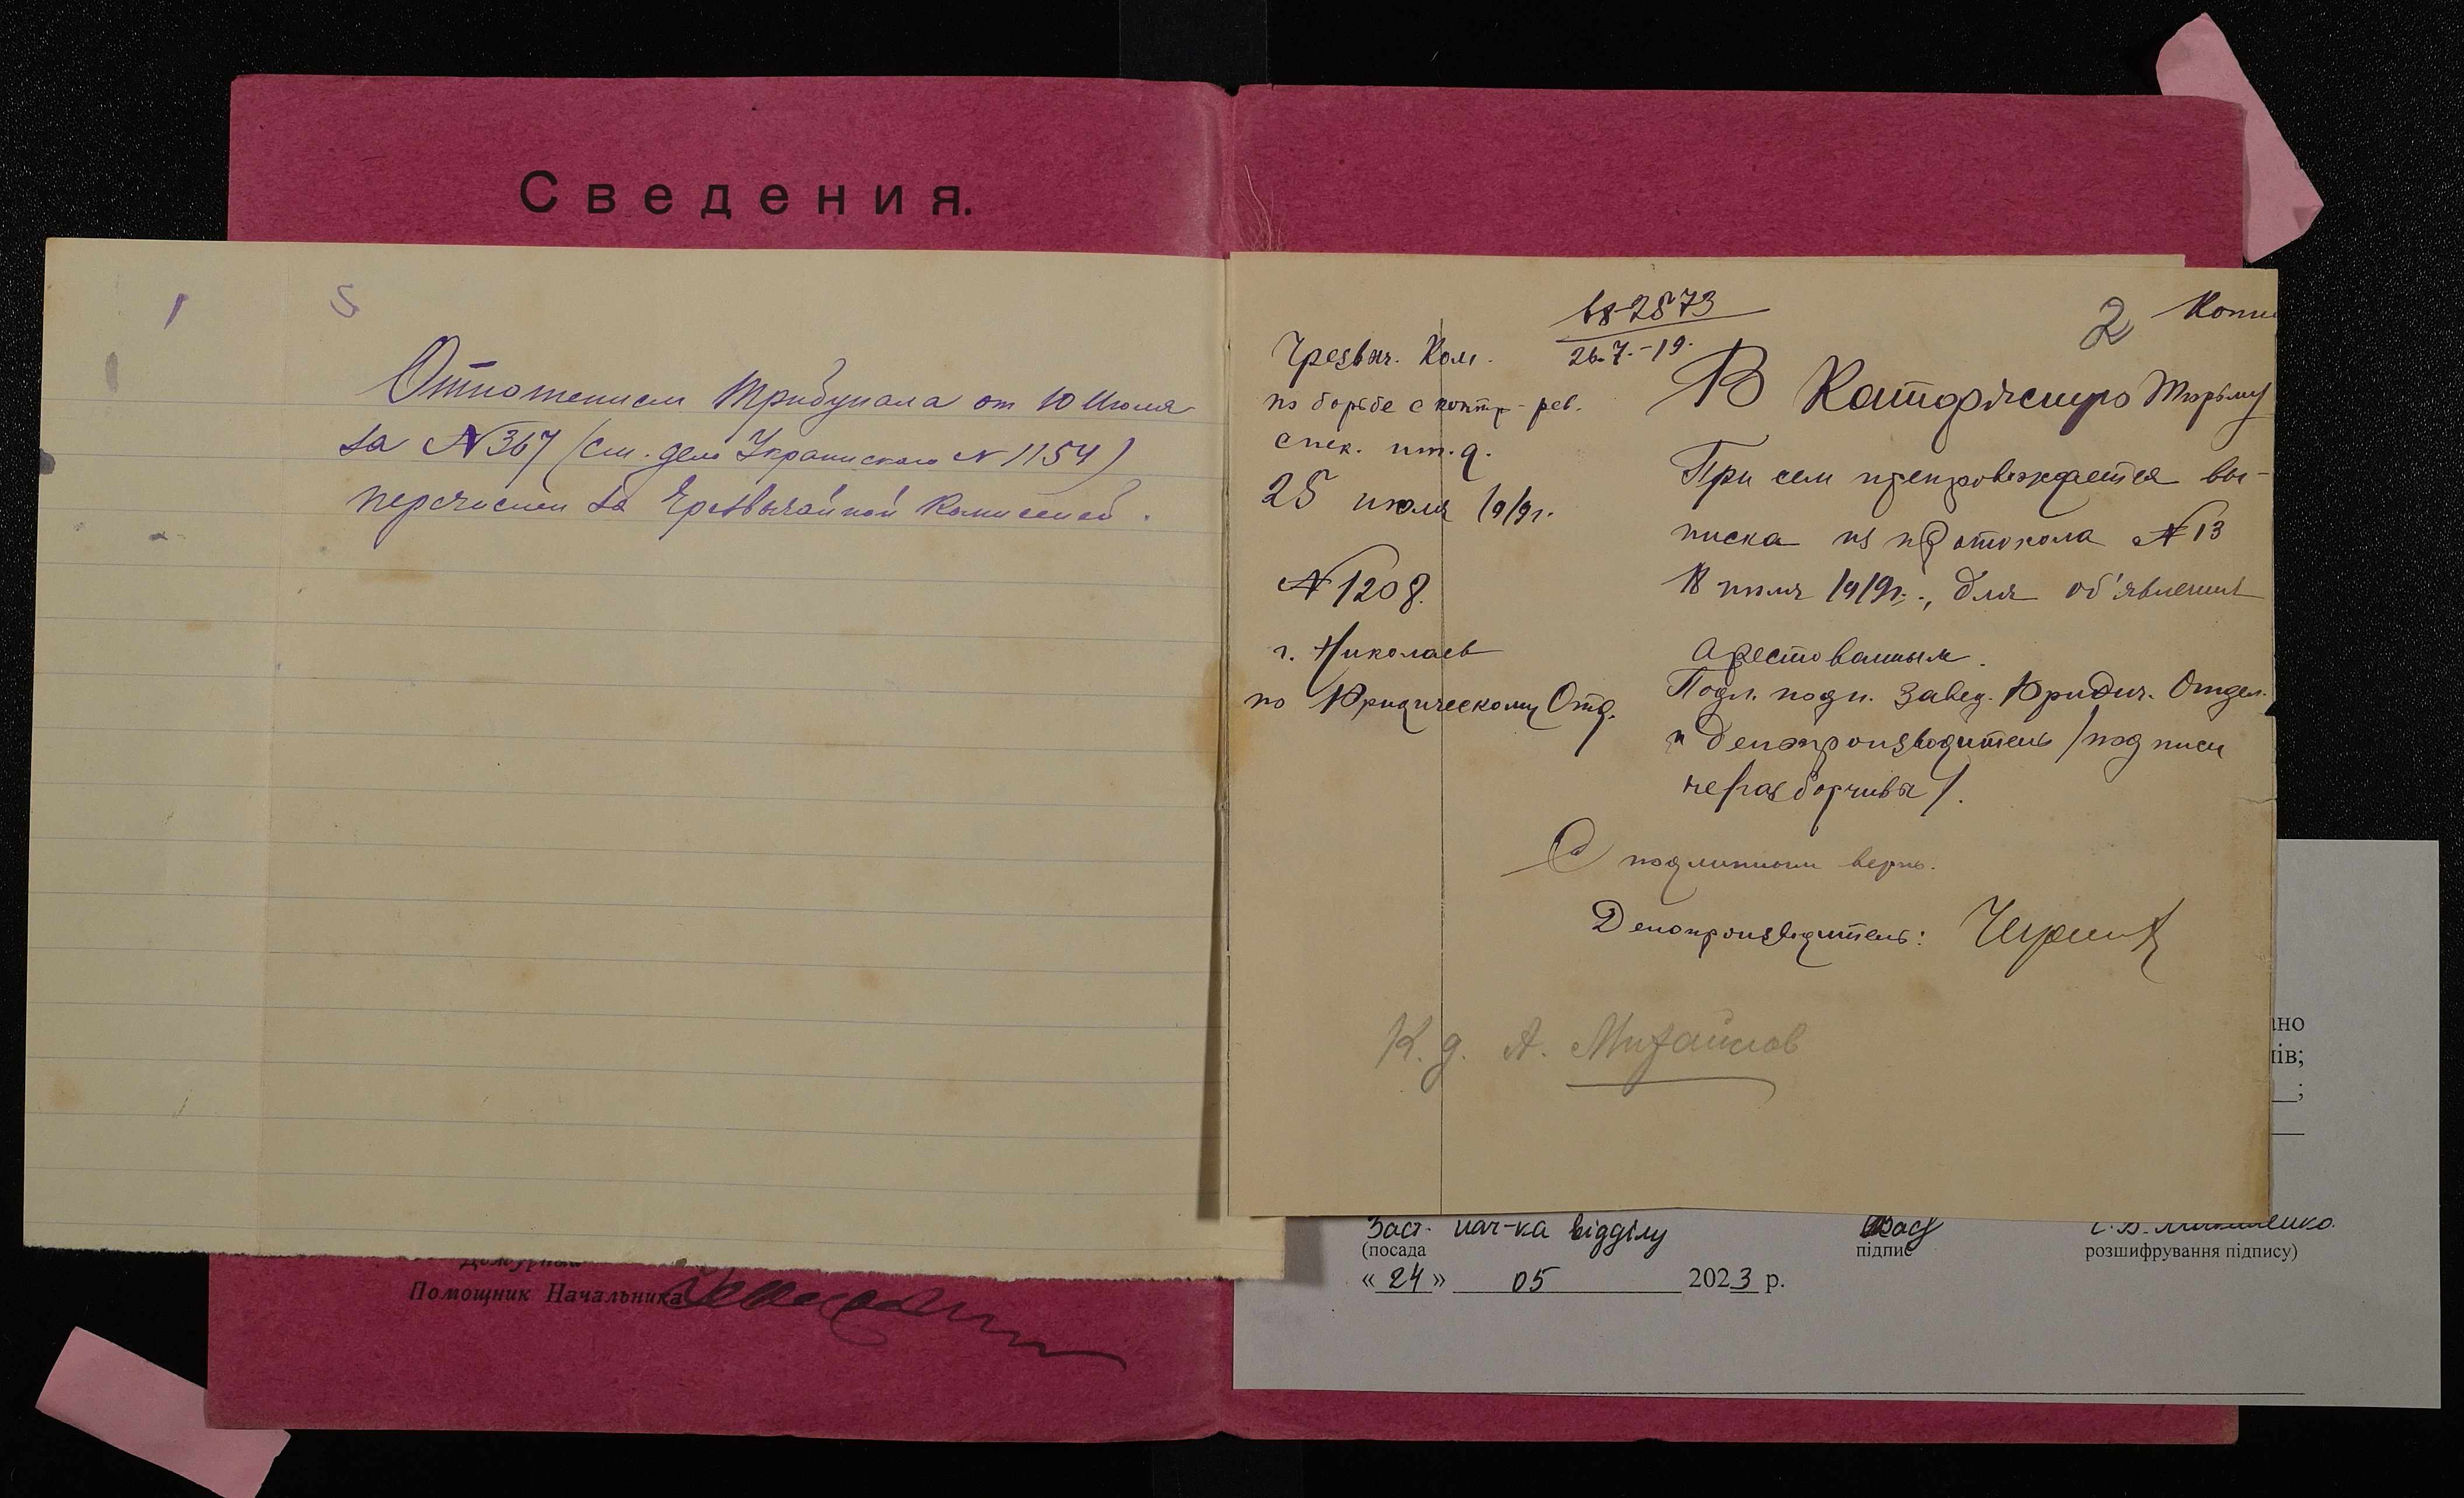 Сведения.
Отношением Трибунала от 10 Июля
за №367 (см. дело Украинского №1154)
перечислен за Чрезвычайной Комиссией.
Помощник Начальника
2
Копи
вх-2873
26.7.-19.
Чрезвыч. Ком.
по борьбе с контр-рев.
спек. и т. д.
25 июля 1919г.
№1208.
г. Николаев
по Юридическому Отд.
В Каторжную Тюрьму
При сем препровождается вы-
писка из протокола №13
18 июля 1919г., для об'явления
арестованным.
Подл. подп. Завед. Юридич. Отдел.
и делопроизводитель /подписи
неразборчивы/.
С подлинным верно.
Делопроизводитель:
К. д. А. Михайлов
но
ів;
;
Заст. нач-ка відділу
(посада
підпис
розшифрування підпису)
«24» 05 2023 р.